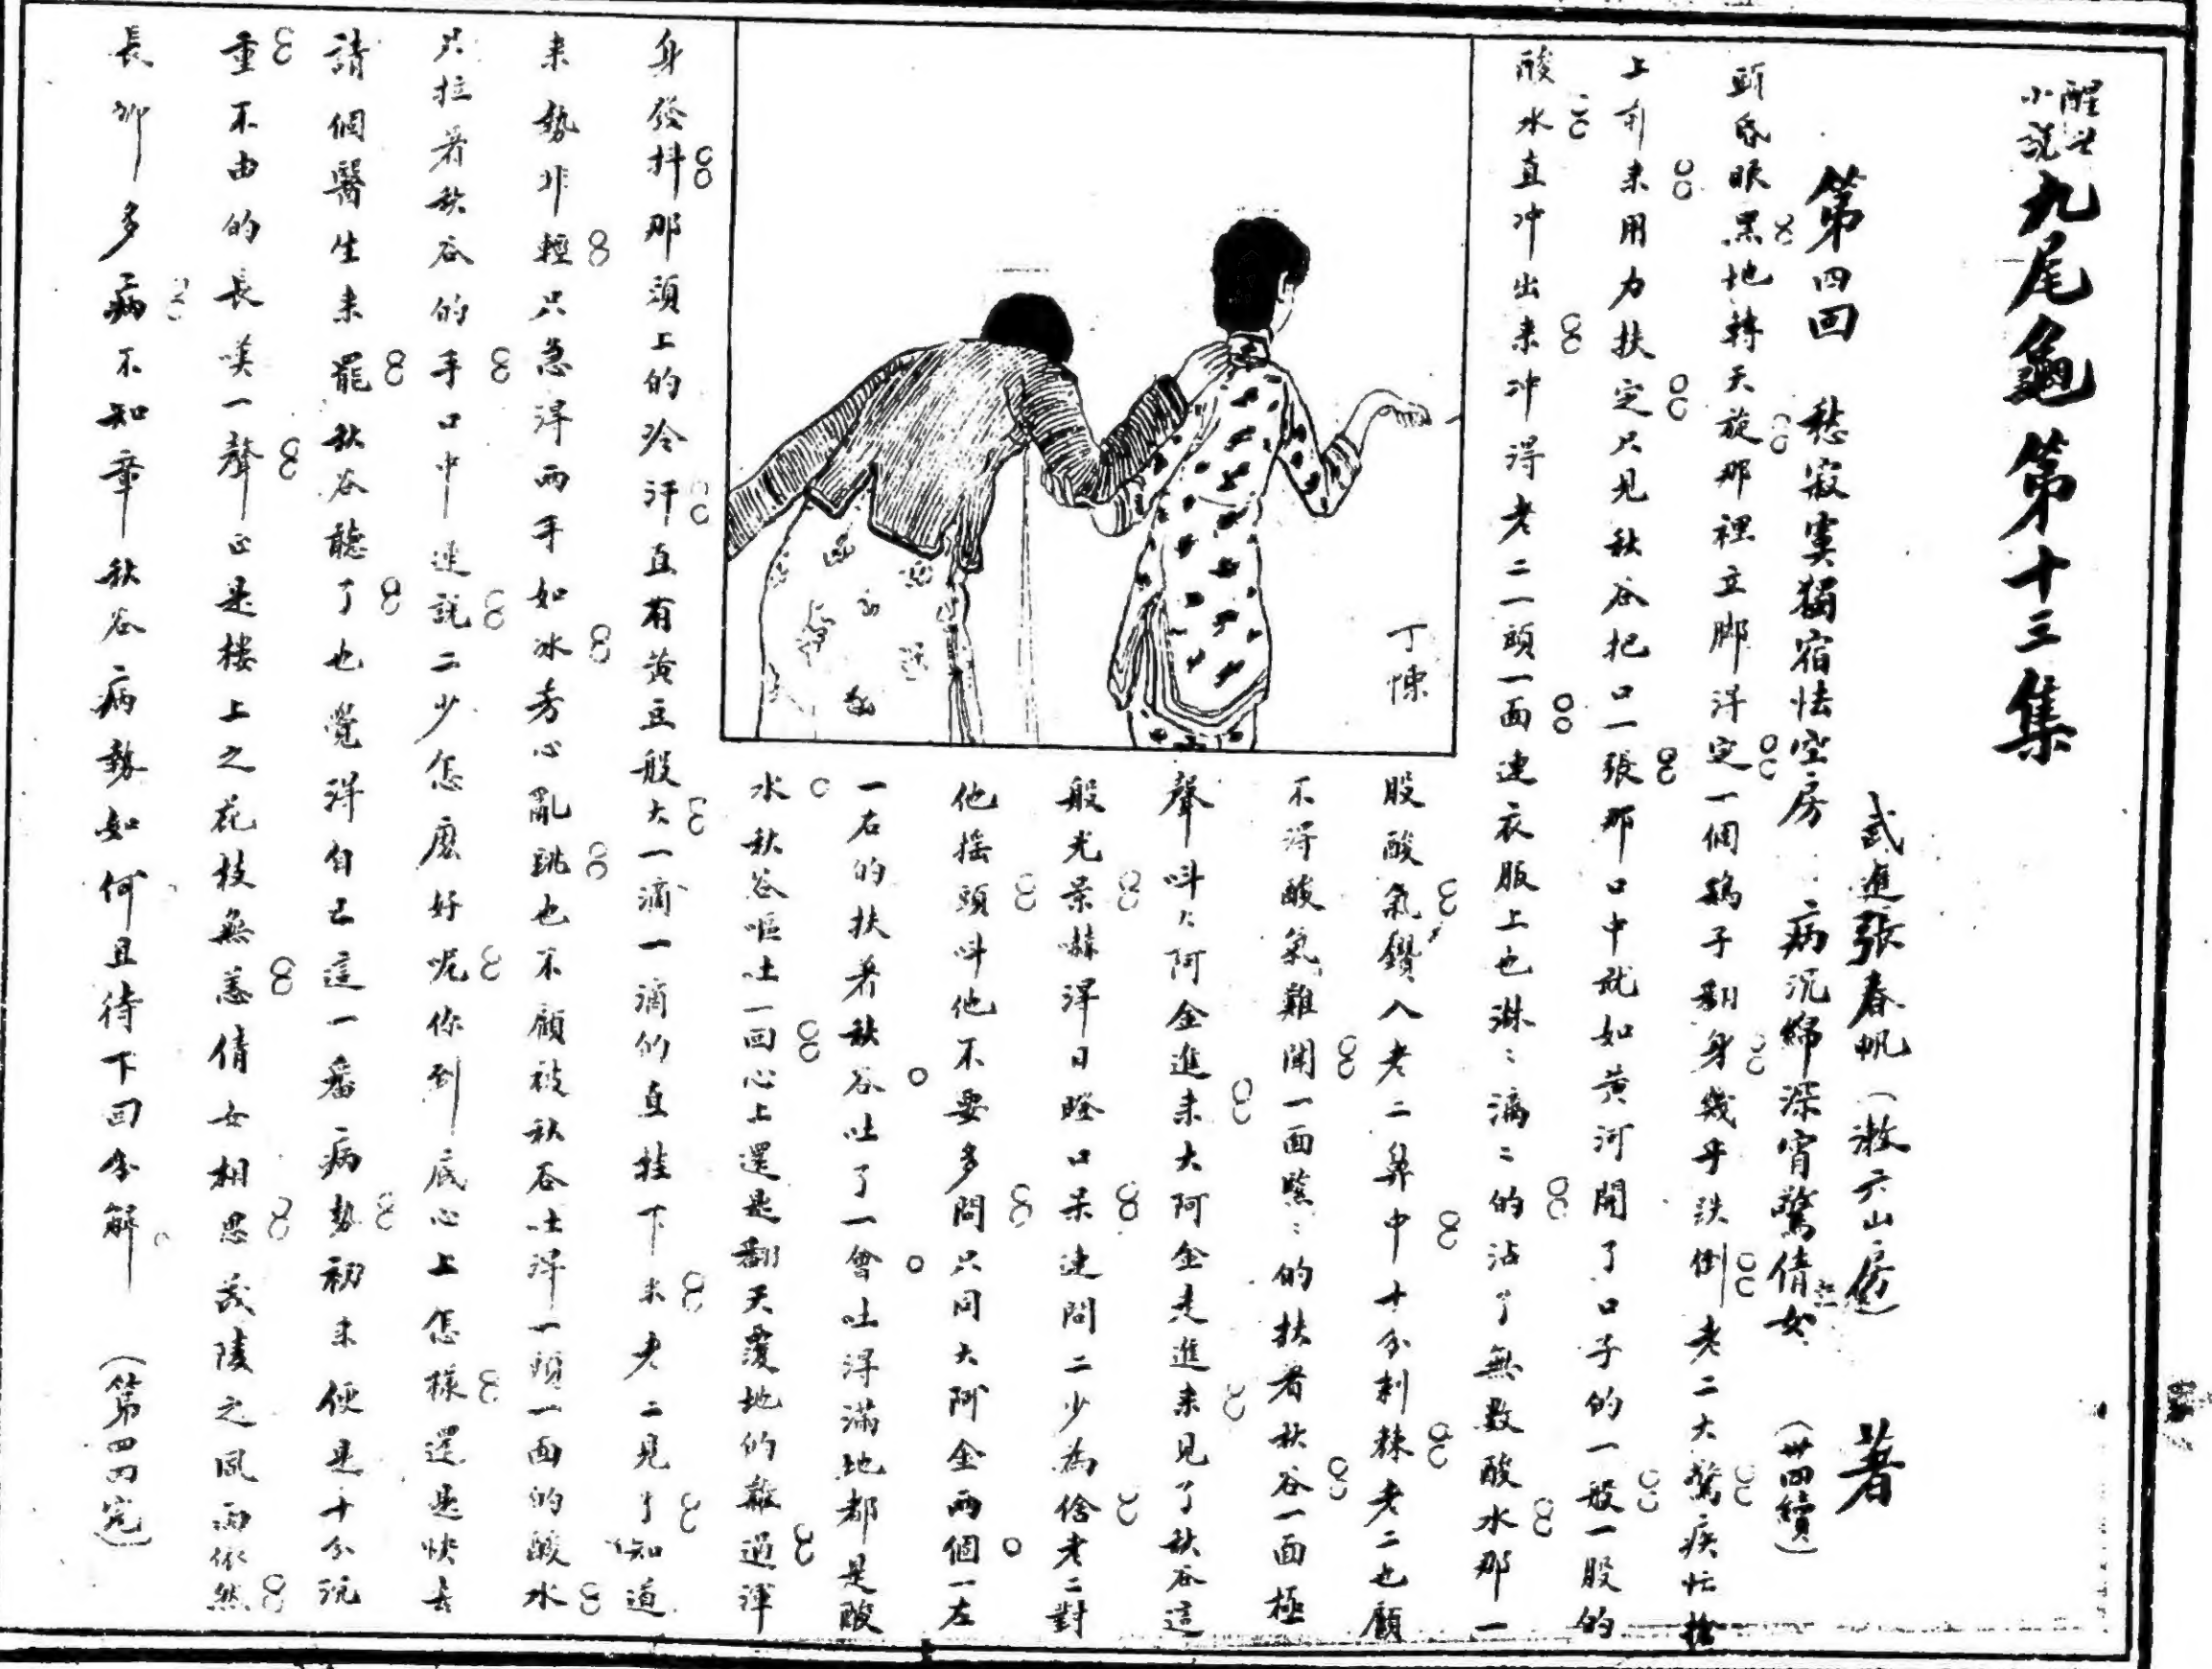 醒世小說 九尾龜第十三集
武進張春帆（漱六山房） 著
第四回 愁寂寞獨宿怯空房 病沉綿深宵驚倩女 （卅四續）
頭昏眼黑地轉天旋那裡立脚得定一個鷂子翻身幾乎跌倒老二大驚疾忙搶
上前來用力扶定只見秋谷把口一張那口中就如黄河開了口子的一般一股的
酸水直冲出來冲得老二一頭一面連衣服上也淋〻漓〻的沾了無数酸水那一
股酸氣鑽入老二鼻中十分刺棘老二也顧
不得酸氣難聞一面緊〻的扶着秋谷一面極
聲呌〻阿金進来大阿金走進来見了秋谷這
般光景嚇得目瞪口呆連問二少為啥老二對
他搖頭呌他不要多問只同大阿金两個一左
一右的扶著秋谷吐了一會吐得滿地都是酸
水秋谷嘔吐一回心上還是翻天覆地的難過渾
身發抖那頭上的冷汗直有黄豆般大一滴一滴的直挂下来老二見了知道
来勢非輕只急得两手如冰芳心亂跳也不顧被秋谷吐得一頭一面的酸水
只拉着秋谷的手口中連説二少怎麽好呢你到底心上怎樣還是快去
請個醫生来罷秋谷聽了也覺得自己這一番病勢初来便是十分沉
重不由的長嘆一聲正是樓上之花枝無恙倩女相思茂陵之風雨依然
長卿多病不知章秋谷病勢如何且待下回分解 （第四回完）
丁悚